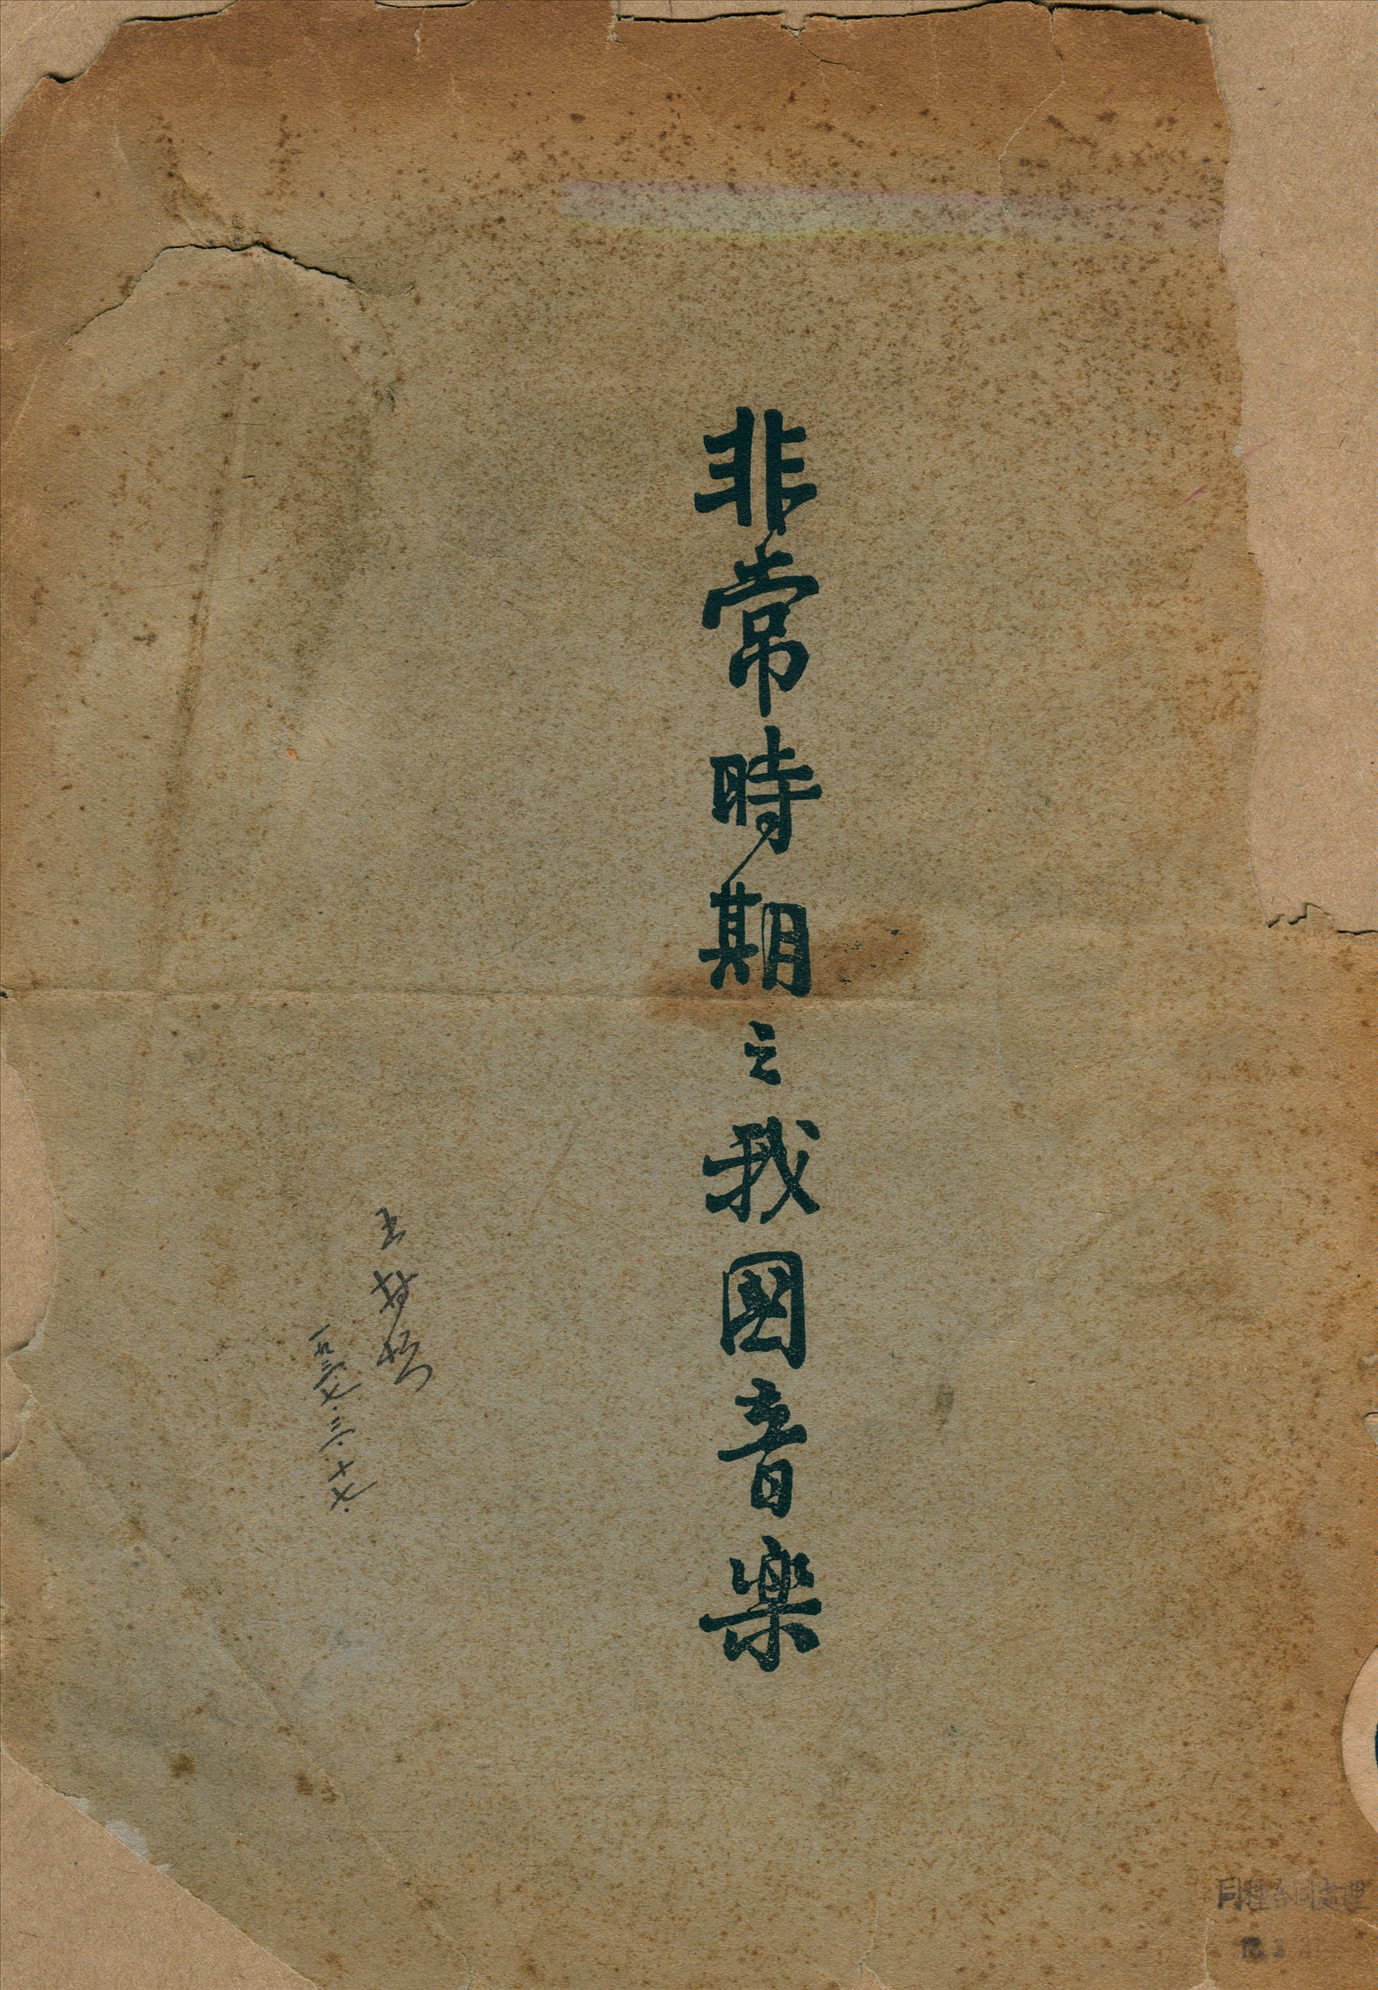 非常時期之我國音樂
一九三七.三.十七.